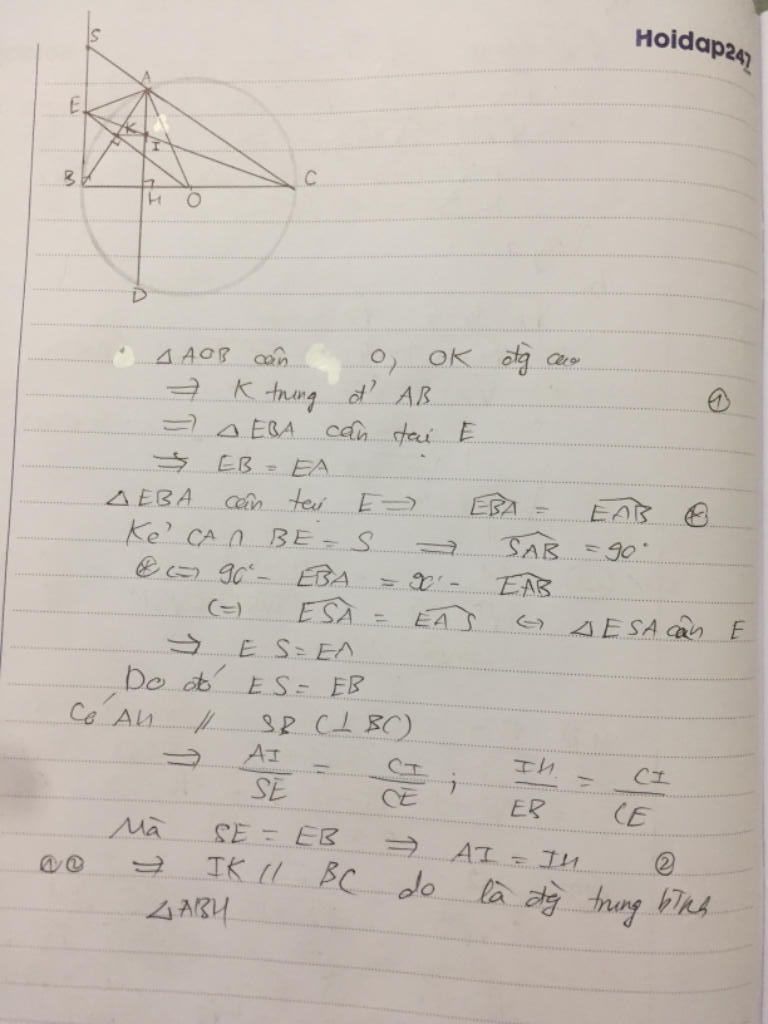 Hoidap247
S
A
E
K
I
B
H
O
C
D
△AOB cân O, OK đg cao
⇒ K trung đ' AB ①
⇒ △EBA cân tại E
⇒ EB = EA
△EBA cân tại E ⇒ \widehat{EBA} = \widehat{EAB} ⊛
Kẻ CA ∩ BE = S ⇒ \widehat{SAB} = 90°
⊛ ⇔ 90° - \widehat{EBA} = 90° - \widehat{EAB}
⇔ \widehat{ESA} = \widehat{EAS} ⇔ △ESA cân E
⇒ ES = EA
Do đó ES = EB
Có AH // SB (⊥ BC)
⇒ AI/SE = CI/CE ; IH/EB = CI/CE
Mà SE = EB ⇒ AI = IH ②
①② ⇒ IK // BC do là đg trung bình
△ABH